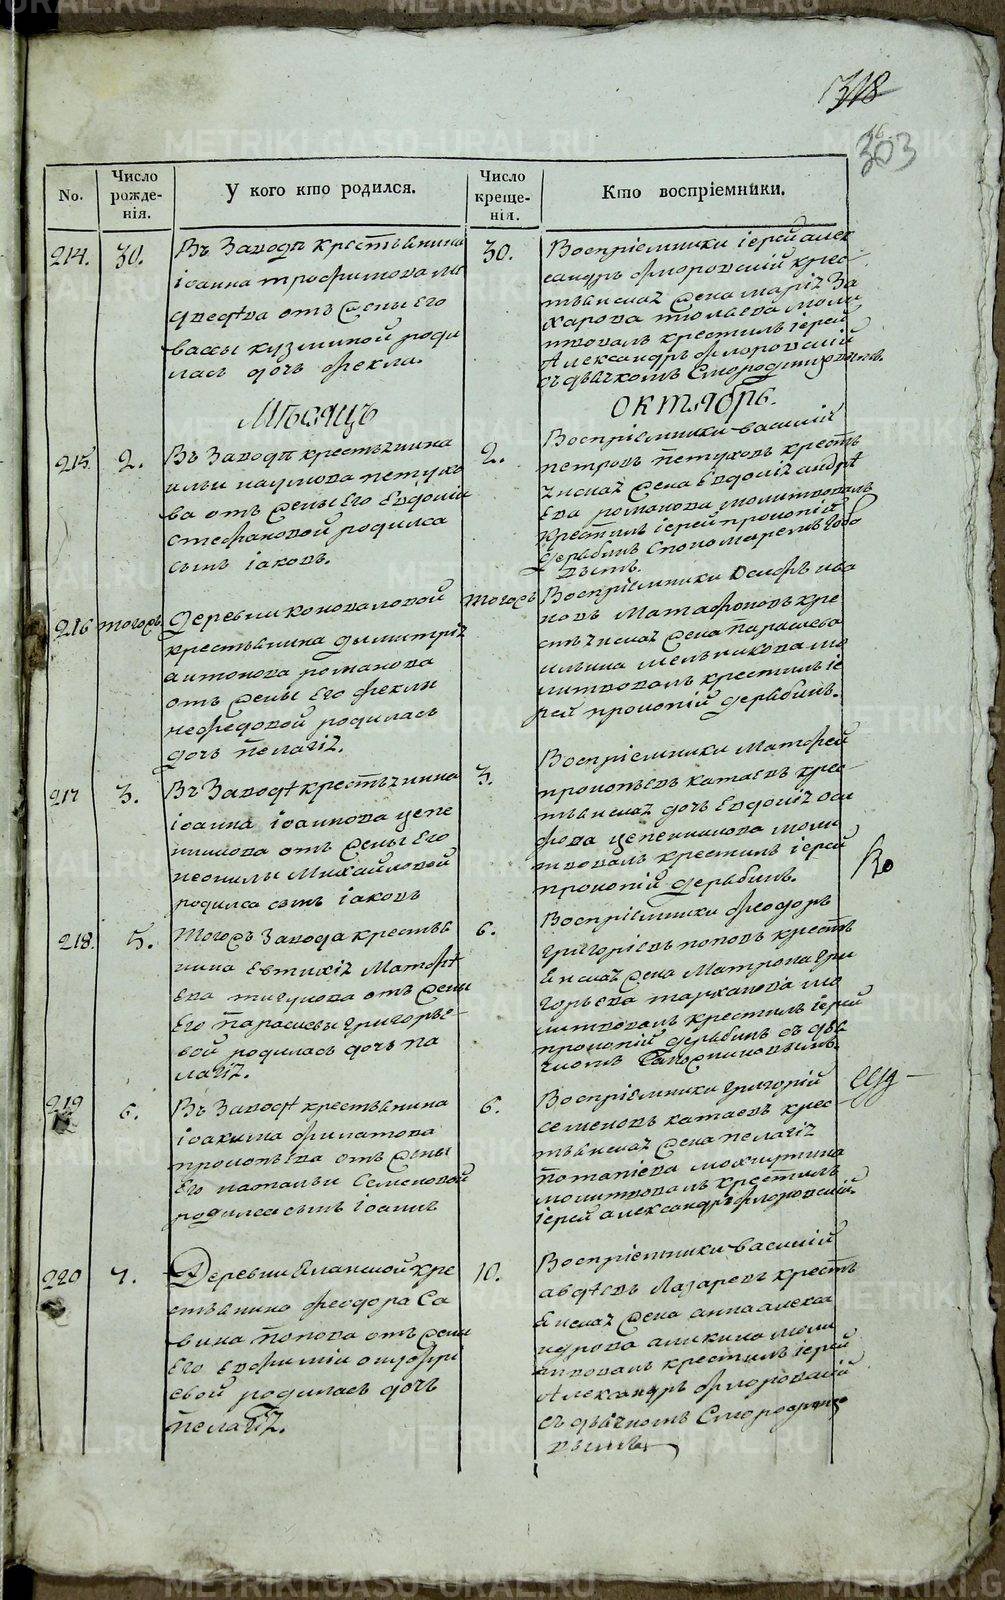 318
303
No.
Число рожде-нія.
У кого кто родился.
Число креще-нія.
Кто воспріемники.
214.
30.
Въ Заводѣ крестьянина
іоанна трофимова
отъ жены Его
вассы кузминой роди
лась дочь Фекла.
30.
Воспріемники іерей алек
сандръ флоровскій крес
тьянская жена марія За
харова
твовалъ крестилъ іерей
Александръ флоровскій
съ дьячкомъ
Мѣсяцъ
октябрь.
215.
2.
Въ Заводѣ крестьянина
ильи наумова петухо
ва отъ жены Его Евдокіи
стефановой родился
сынъ іаковъ.
2.
Воспріемники василій
петровъ петуховъ кресть
янская жена Евдокія андрѣ
Ева романова молитвовалъ
крестилъ іерей прокопій
дерябинъ
216
тогожъ
деревни коноваловой
крестьянина дымитрія
антонова романова
отъ жены Его феклы
нефедовой родилась
дочь пелагія.
тогожъ
Воспріемники іосифъ ива
новъ Матафоновъ кре
стьянская жена парасковья
ильина мельникова мо
литвовалъ крестилъ іе
рей прокопій дерябинъ.
217
3.
Въ Заводѣ крестьянина
іоанна іоаннова
отъ жены Его
неонилы Михайловой
родился сынъ іаковъ
3.
Воспріемники Матфей
прокопьевъ катаевъ крес
тьянская дочь Евдокія
моли
твовалъ крестилъ іерей
прокопій дерябинъ.
Ко
218.
5.
тогожъ Завода крестья
нина Евтихія Матфѣ
Ева тигунова отъ жены
Его парасковьи григорье-
вой родилась дочь па
лагія.
6.
Воспріемники феодоръ
григорьевъ поповъ кресть
янская жена Матрона гри
горьева тарханова мо
литвовалъ крестилъ іерей
прокопій дерябинъ съ дья
чкомъ
219
6.
Въ Заводѣ крестьянина
іоакима филатова
прокопьева отъ жены
Его натальи Семеновой
родился сынъ іоаннъ
6.
Воспріемники григорій
семеновъ катаевъ крес
тьянская жена пелагія
потапіева
молитвовалъ крестилъ
іерей александръ флоровскій.
220
7.
Деревни Еланской кре
стьянина феодора Са
вина попова отъ жены
Его Евфиміи онуфрі
евой родилась дочь
пелагія.
10.
Воспріемники василій
авдѣевъ Лазаревъ кресть
янская жена анна алекса
ндрова аникина моли
твовалъ крестилъ іерей
Александръ флоровскій
съ дьячкомъ
METRIKI.GASO-URAL.RU